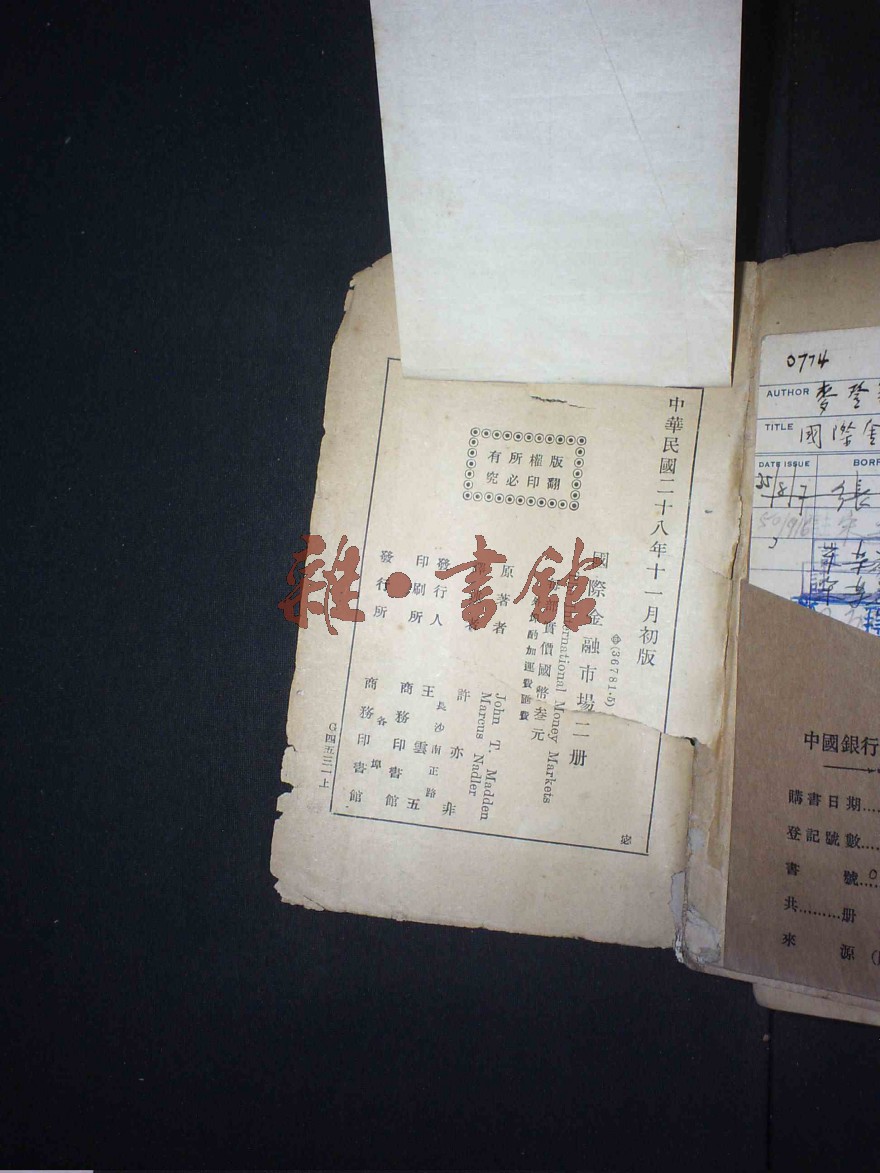 中華民國二十八年十一月初版
(36781·5)
國際金融市場二册
International Money Markets
實價國幣叁元
酌加運費匯費
版權所有
翻印必究
原著者 John T. Madden
Marcus Nadler
者 許亦非
發行人 王雲五
長沙南正路
印刷所 商務印書館
發行所 商務印書館
各埠
G四五三一上
雜·書館
0774
AUTHOR 麥登
TITLE 國際金
DATE ISSUE
BORR
中國銀行
購書日期
登記號數
書號 0
共 册
來源